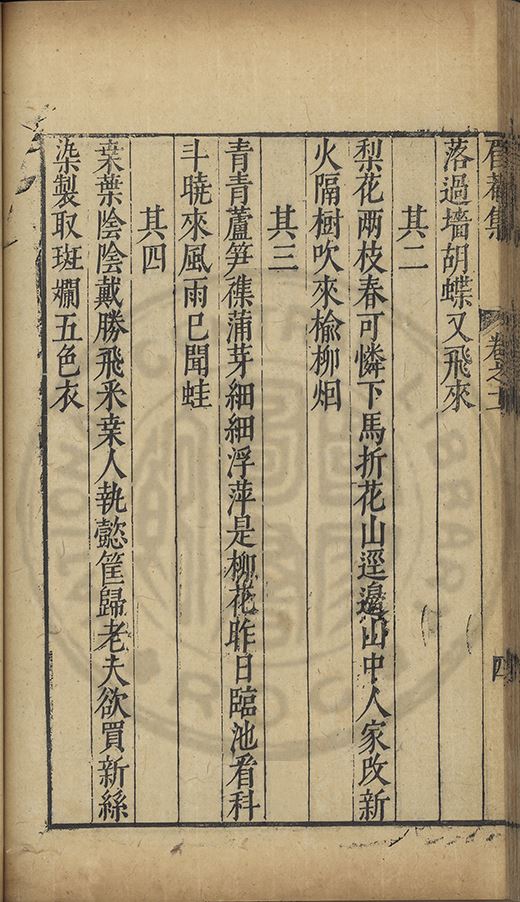 落過墻胡蝶又飛來
其二
梨花两枝春可憐下馬折花山逕邊山中人家改新
火隔樹吹來榆柳烟
其三
青青蘆笋雜蒲芽細細浮萍是柳花昨日臨池看科
斗曉來風雨已聞蛙
其四
桒葉陰陰戴勝飛釆桒人執懿筐歸老夫欲買新絲
染製取斑斕五色衣
集 卷之二 四